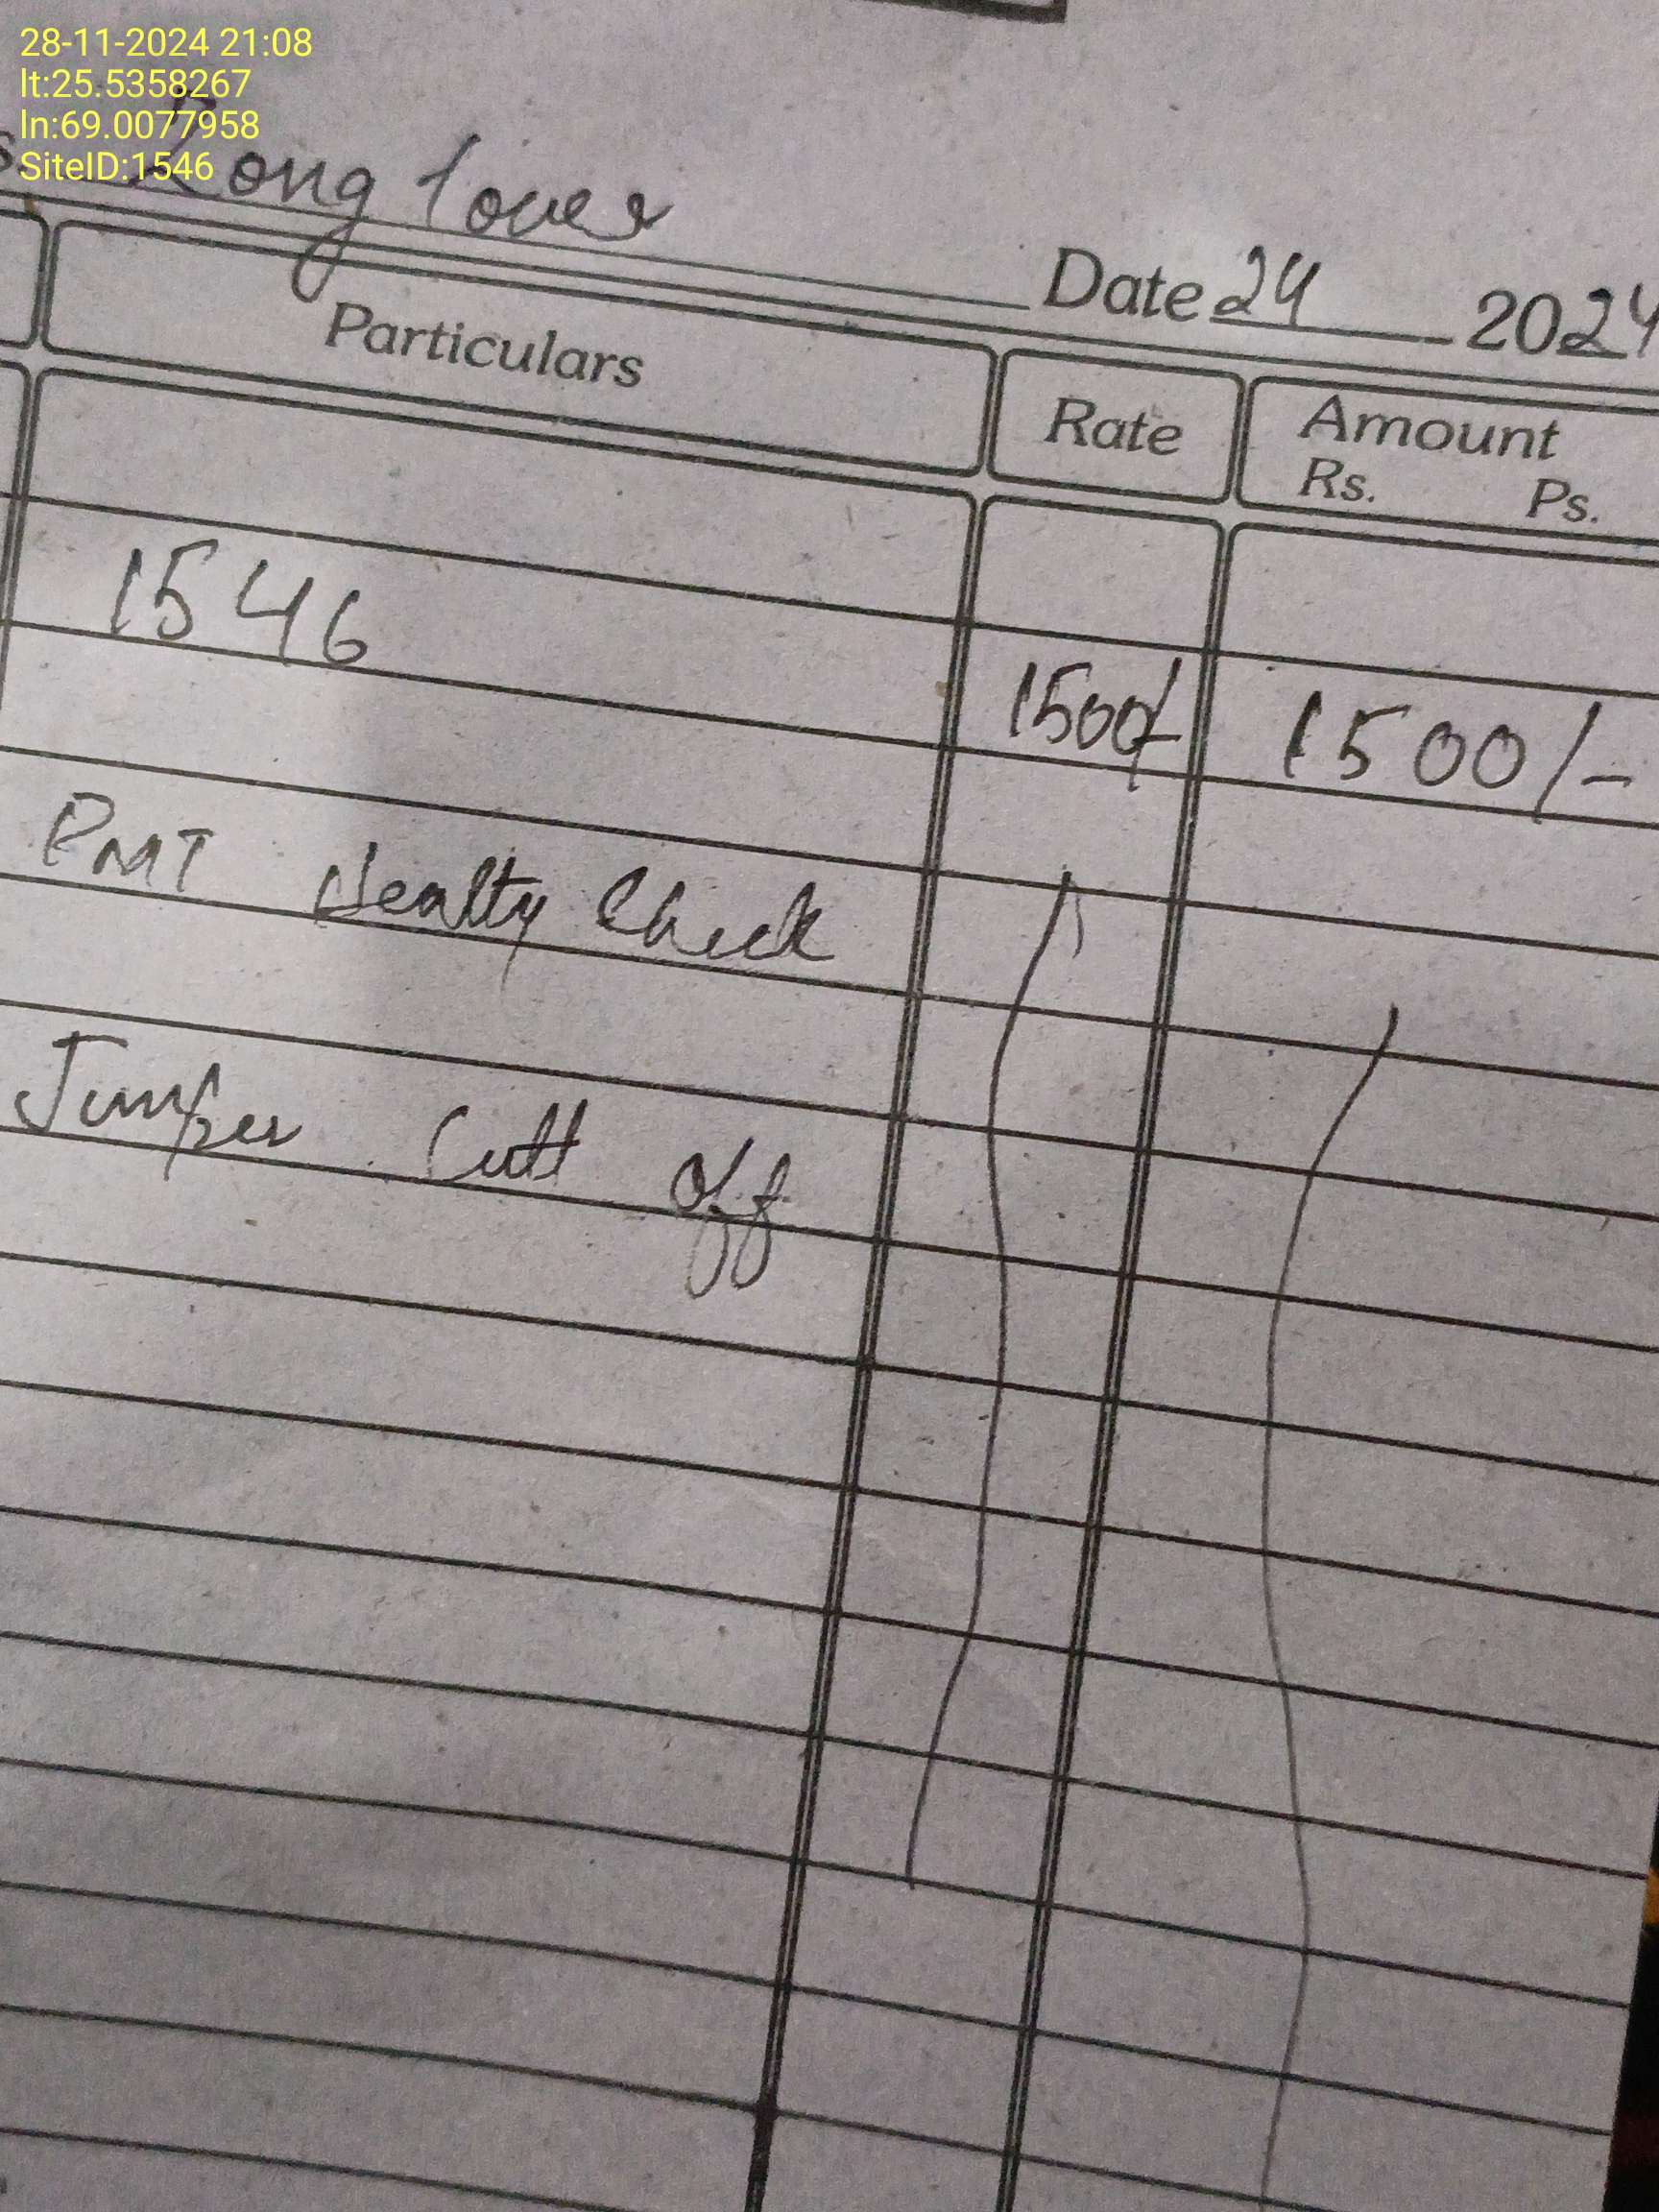 28-11-2024 21:08
lt:25.5358267
ln:69.0077958
SiteID:1546
Zong Tower
Date 24 2024
Particulars Rate Amount
Rs. Ps.
1546
1500/- 1500/-
PMT Healty Check
Jumper Cutt off